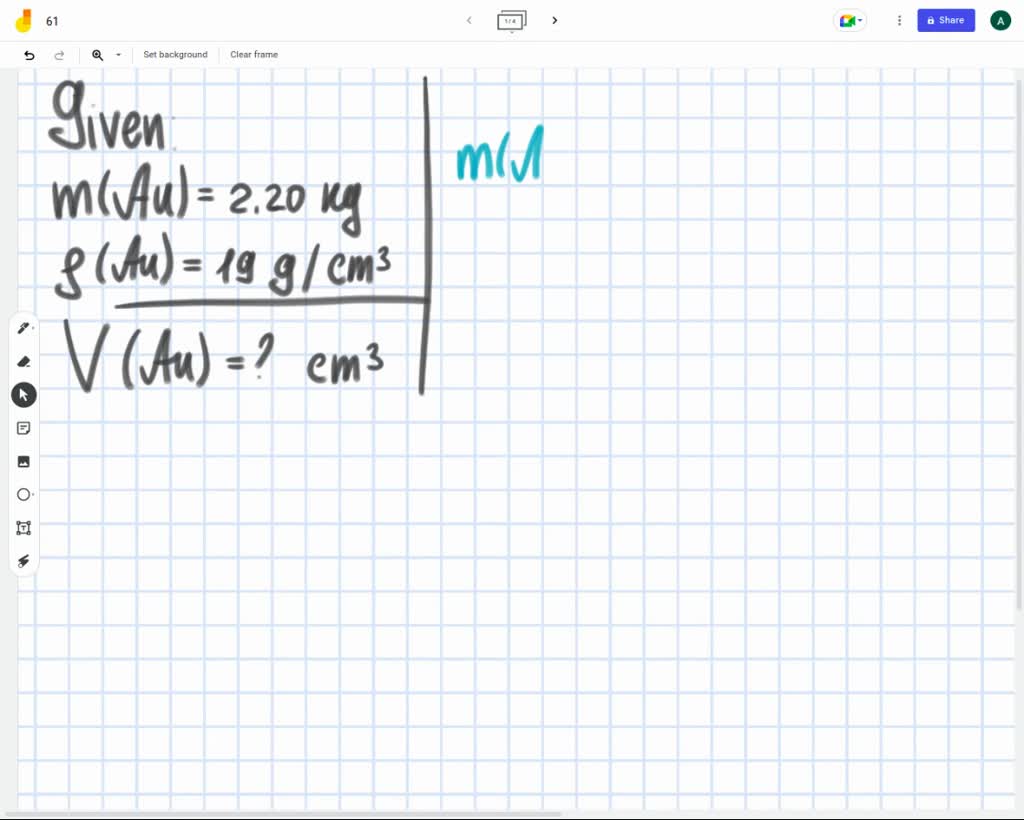 61
1/4
Share
A
Set background
Clear frame
Given:
m(Au) = 2.20 kg
m(A
ρ(Au) = 19 g/cm³
V(Au) = ? cm³